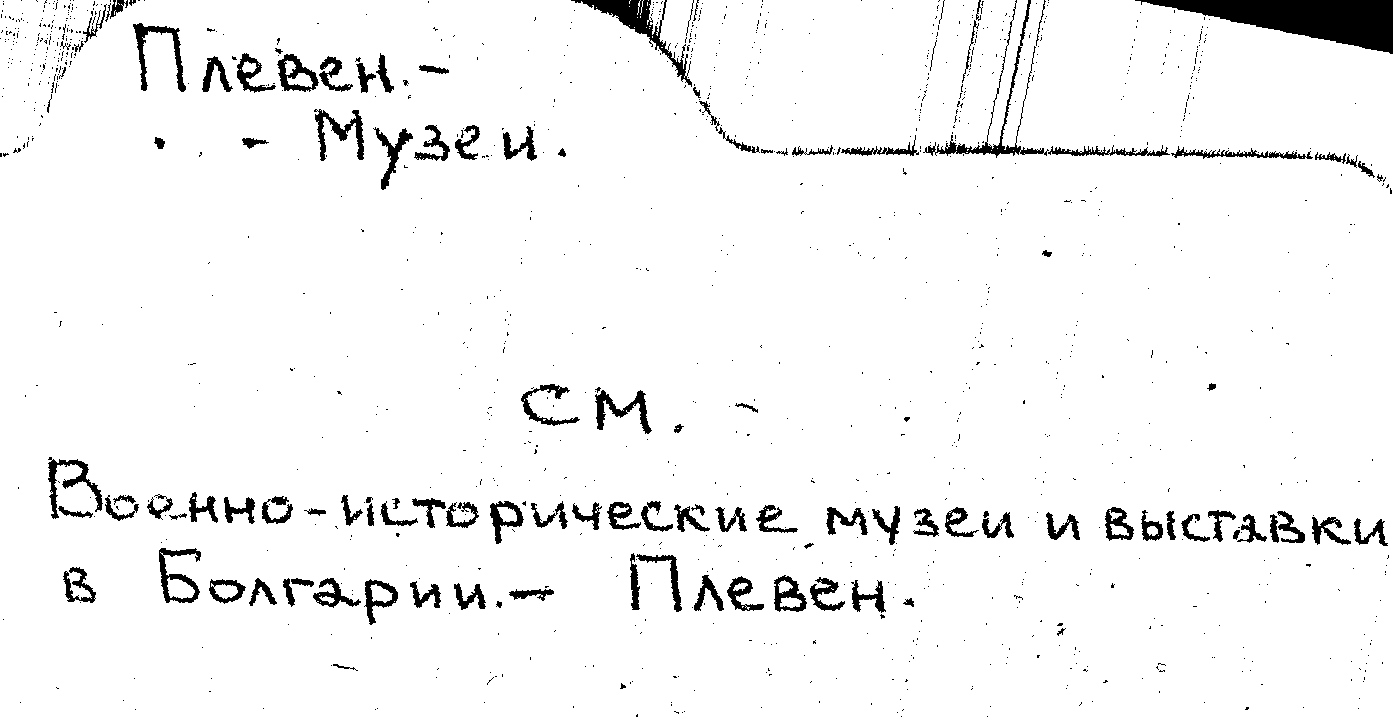 Плевен.-
- Музеи.
см.
Военно-исторические музеи и выставки
в Болгарии.- Плевен.